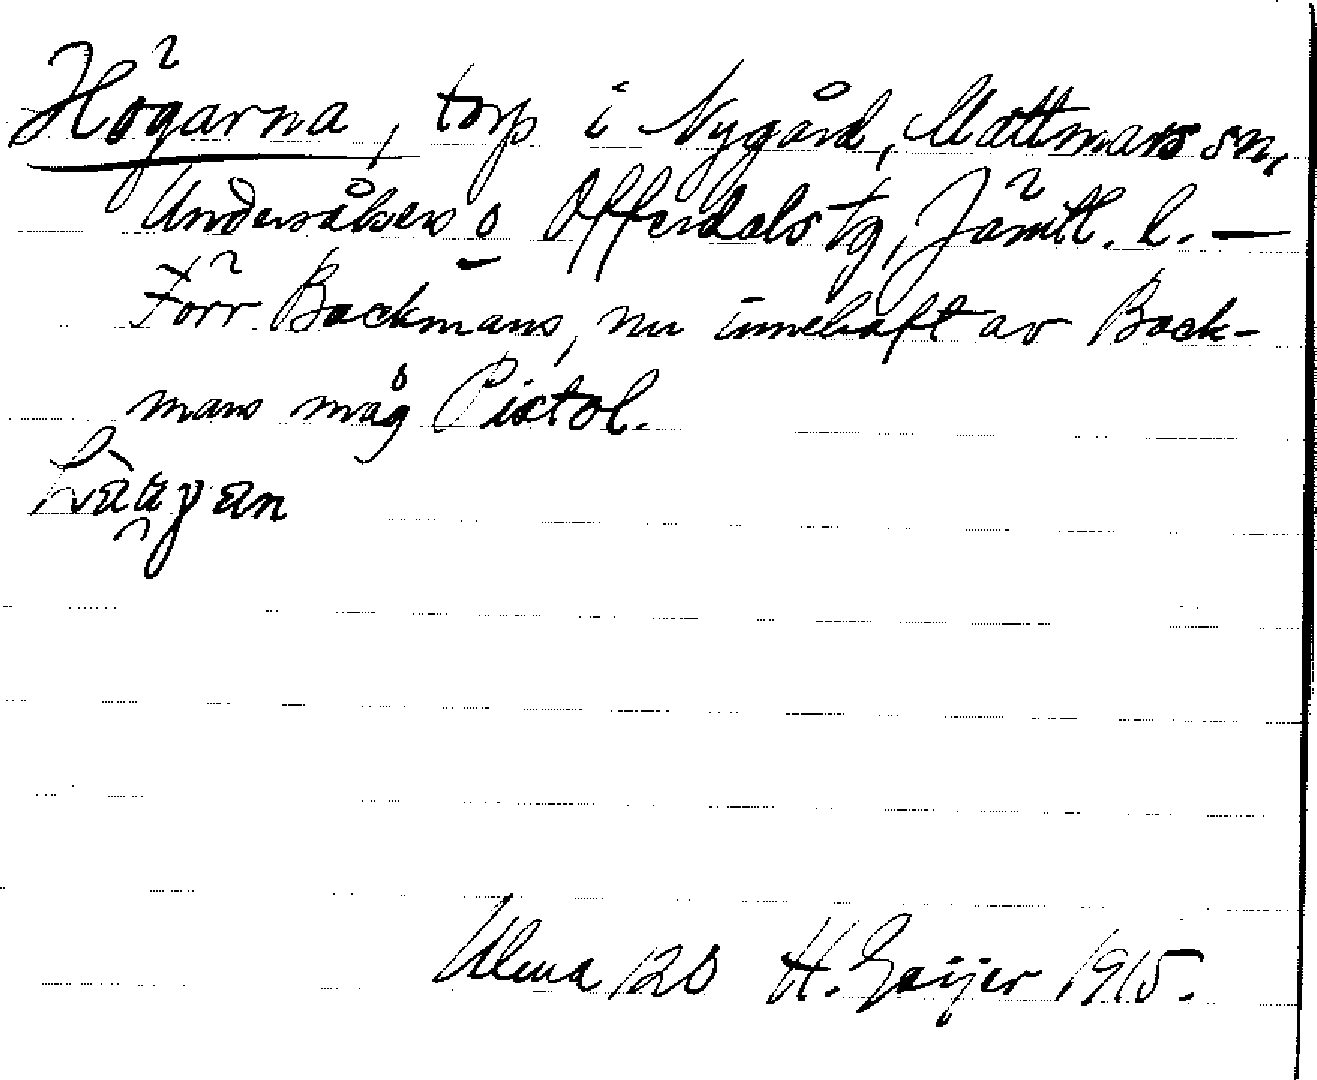 Högarna, torp i Nygård, Mattmars sn,
Undersåkers o Offerdals tg, Jämtl. l. —
Förr Backmans, nu innehaft av Back-
mans måg Pistol.
Ulma 120 H. Geijer 1915.